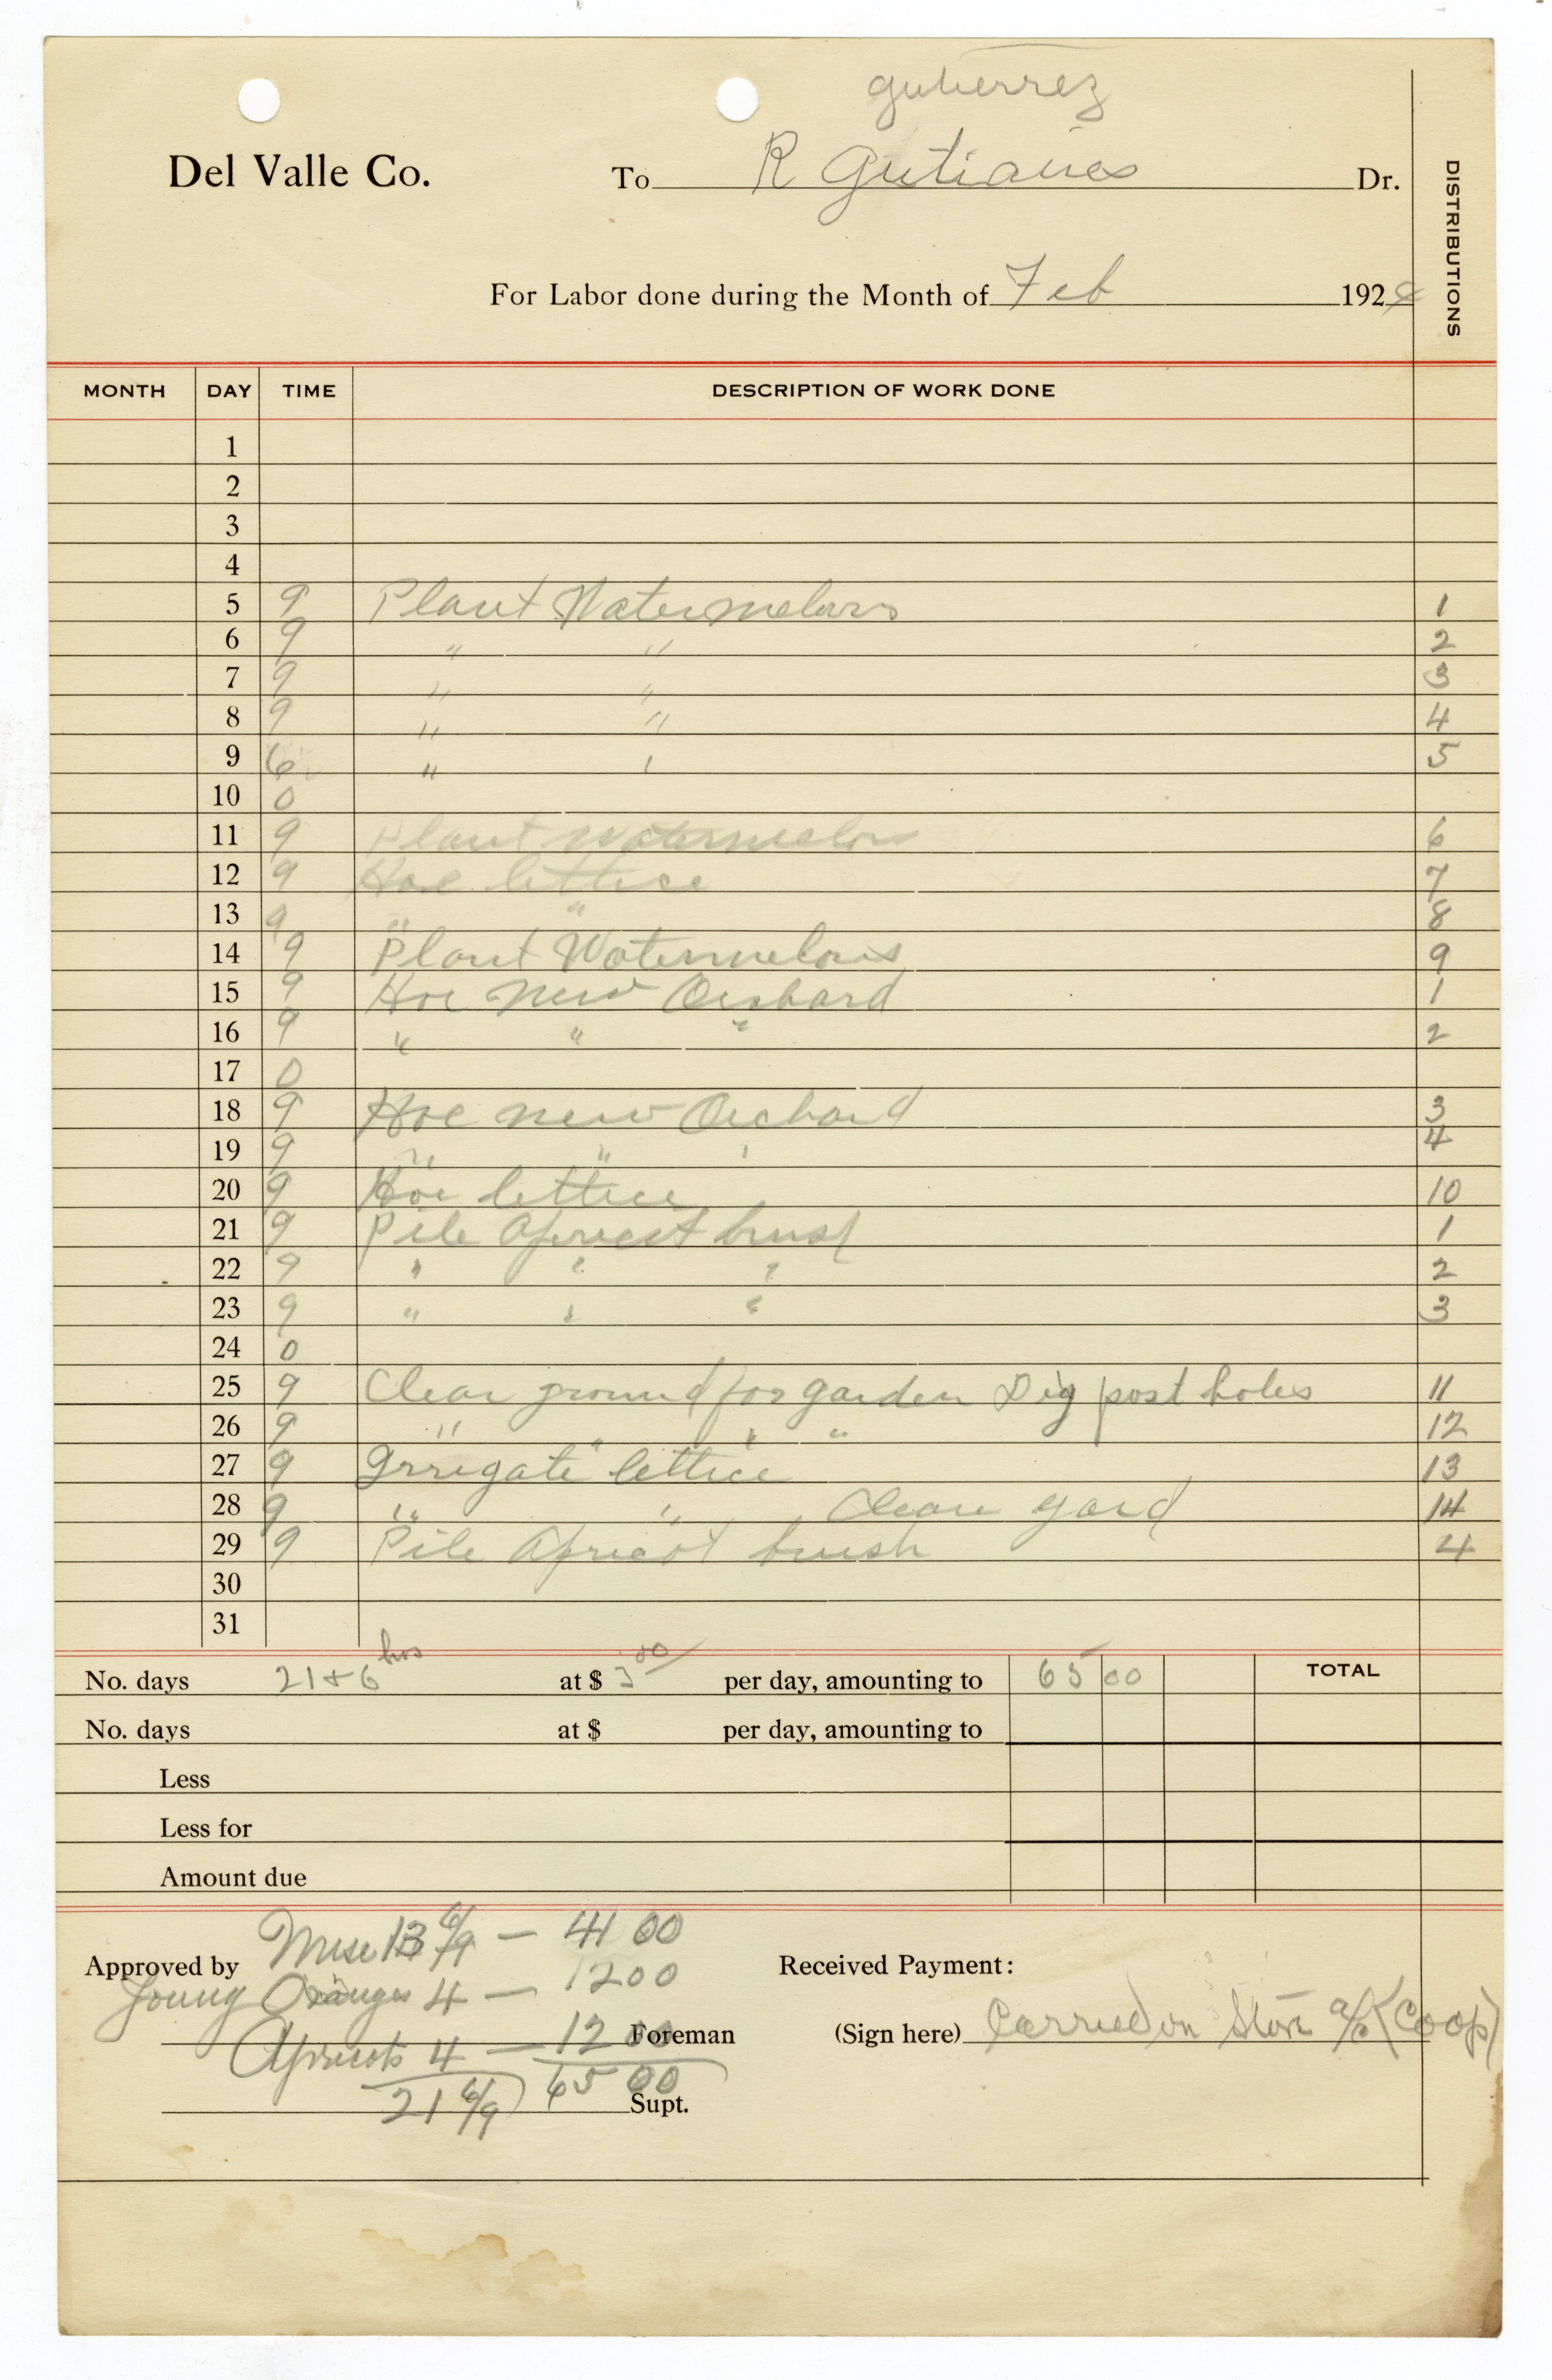 Gutierrez
Del Valle Co. To R Gutiaires Dr.
DISTRIBUTIONS
For Labor done during the Month of Feb 1924
MONTH DAY TIME DESCRIPTION OF WORK DONE
1
2
3
4
5 9 Plant Watermelons 1
6 9 " " 2
7 9 " " 3
8 9 " " 4
9 6 " " 5
10 0
11 9 Plant Watermelons 6
12 9 Hoe lettice 7
13 9 " " 8
14 9 Plant Watermelons 9
15 9 Hoe new Orchard 1
16 9 " " " 2
17 0
18 9 Hoe new Orchard 3
19 9 " " " 4
20 9 Hoe lettice 10
21 9 Pile Apricot brush 1
22 9 " " " 2
23 9 " " " 3
24 0
25 9 Clear ground for garden Dig post holes 11
26 9 " " " " 12
27 9 Irrigate lettice 13
28 9 " " Clean yard 14
29 9 Pile Apricot brush 4
30
31
No. days 21 + 6 hrs at $ 3 00 per day, amounting to 65 00 TOTAL
No. days at $ per day, amounting to
Less
Less for
Amount due
Approved by Misc 13 6/9 — 41 00 Received Payment:
Young Oranges 4 — 12 00
Apricots 4 — 12 00 Foreman (Sign here) Carried on Store a/c (Coop)
21 6/9 65 00 Supt.